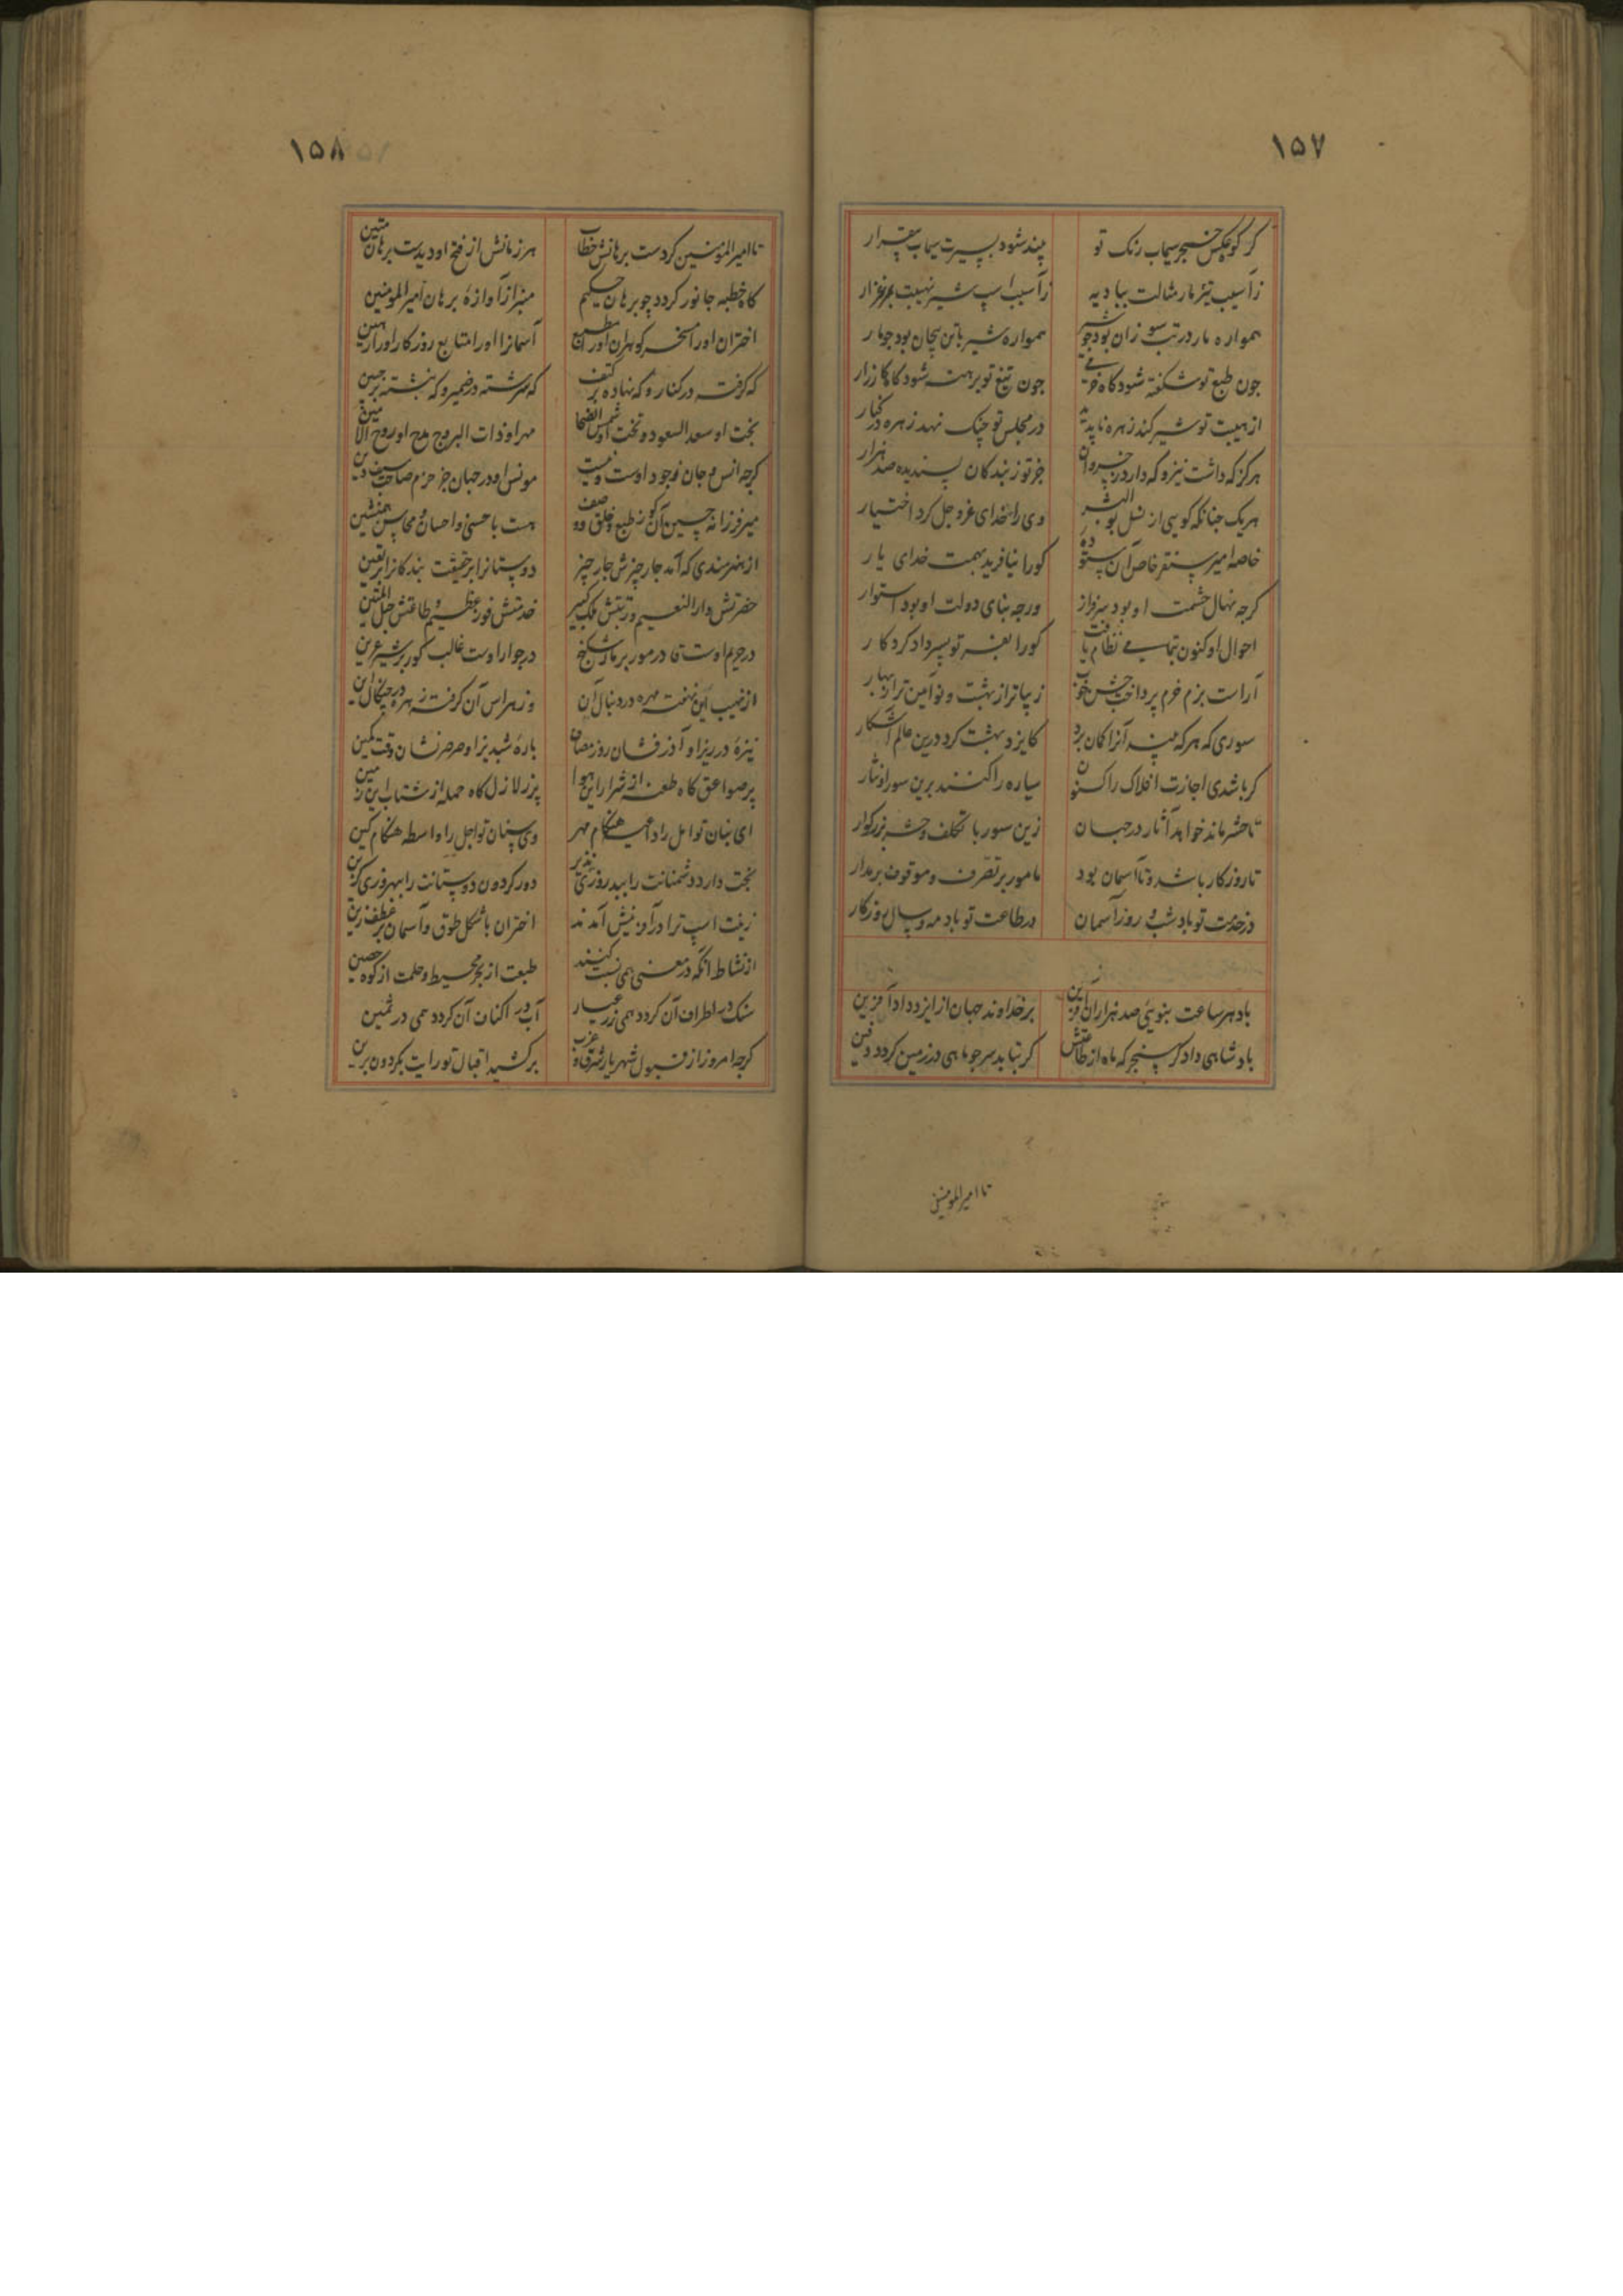 ۱۵۷
کر کوه عکس خنجر سیماب رنک تو بیند شود بسیرت سیماب بیقرار
زآسیب تیر مار مثالت ببادیه زآسیب اسب شیر نهیبت بمرغزار
همواره مار در تب سوزان بود جو شیر همواره شیر با تن بیجان بود جو مار
جون طبع تو شکفته شود کاه خرمی جون تیغ تو برهنه شود کاه کارزار
از هیبت تو شیر کند زهره ناپدید در مجلس تو چنک نهد زهره در کنار
هرکز که داشت نیز و که دارد ز خسروان جز تو ز بندکان پسندیده صد هزار
هریک جنانکه کویی از نسل بو البشر وی را خدای عز و جل کرد اختیار
خاصه امیر سنقر خاص آن ستوده کورا نیافرید بهمت خدای یار
کرجه نهال حشمت او بود سرفراز ورجه بنای دولت او بود استوار
احوال او کنون بتمامی نظام یافت کورا بفر تو پسری داد کردکار
آراست بزم خرم و پرداخت جشن خوب زیباتر از بهشت و نو آیین تر از بهار
سوری که هرکه بیند آنرا کمان برد کایزد بهشت کرد درین عالم آشکار
کر باشدی اجازت افلاک را کنون سیاره را کنند برین سور او نثار
تا حشر ماند خواهد آثار در جهان زین سور با تکلف و جشن بزرکوار
تا روزکار باشد و تا آسمان بود مامور بر تصرف و موقوف بر مدار
در خدمت تو باد شب و روز آسمان در طاعت تو باد مه و سال روزکار
باد هر ساعت بنویی صد هزاران آفرین بر خداوند جهان از ایزد داد آفرین
بادشاهی دادکر سنجر که ماه از طاعتش کر بتابد سر جو ماهی در زمین کردد دفین
تا امیرالمومنین
۱۵۸
تا امیرالمومنین کردست برهانش خطاب هر زمانش از فتح او دیدست برهان متین
کاه خطبه جانور کردد جو برهان حکیم منبر از آوازه برهان امیرالمومنین
اختران او را مسخر کوهران او را مطیع آسمان او را متابع روزکار او را رهین
که کرفته در کنار و که نهاده بر کتف که سرشته در ضمیر و که نبشته بر جبین
بخت او سعد السعود و تخت او شمس الضحا مهر او ذات البروج مدح او روح الامین
کرجه انس و جان بوجود اوست ونیست مونس او در جهان جز حزم صاحب سیف دین
میر فرزانه حسین آن کو ز طبع و خلق و وصف هست با حسنی و احسان و محاسن همنشین
از هنرمندی که آمد جار چیزش جار چیز دوستانرا بر حقیقت بندکانرا بر یقین
حضرتش دار النعیم و رتبتش ملک کبیر خدمتش فوز عظیم و طاعتش حبل المتین
در حریم اوست قادر مور بر مار شکنج در جوار اوست غالب کور بر شیر عرین
از نهیب این نهفته مهره در دنبال آن وز هراس آن کرفته زهره در چنکال این
نیزه دُرریز او آذر فشان روز مصاف باره شبدیز او صرصر نشان وقت کمین
پر صواعق کاه طعنه از شرار این هوا پر زلازل کاه حمله از شتاب این زمین
ای بنان تو امل را داعیه هنکام مهر وی سنان تو اجل را واسطه هنکام کین
بخت دارد دشمنانت را ببد روزی نذیر دور کردون دوستانت را ببهروزی قرین
زینت اسب ترا در آفرینش آمدند اختران با شکل طوق و آسمان بر عطف زین
از نشاط آنکه در معنی همی نسبت کنند طبعت از بحر محیط و حلمت از کوه حصین
سنک در اطراف آن کردد همی زر عیار آب در اکناف آن کردد همی در ثمین
کرجه امروز از قبول شهریار شرق و غرب برکشید اقبال تو رایت بکردون برین